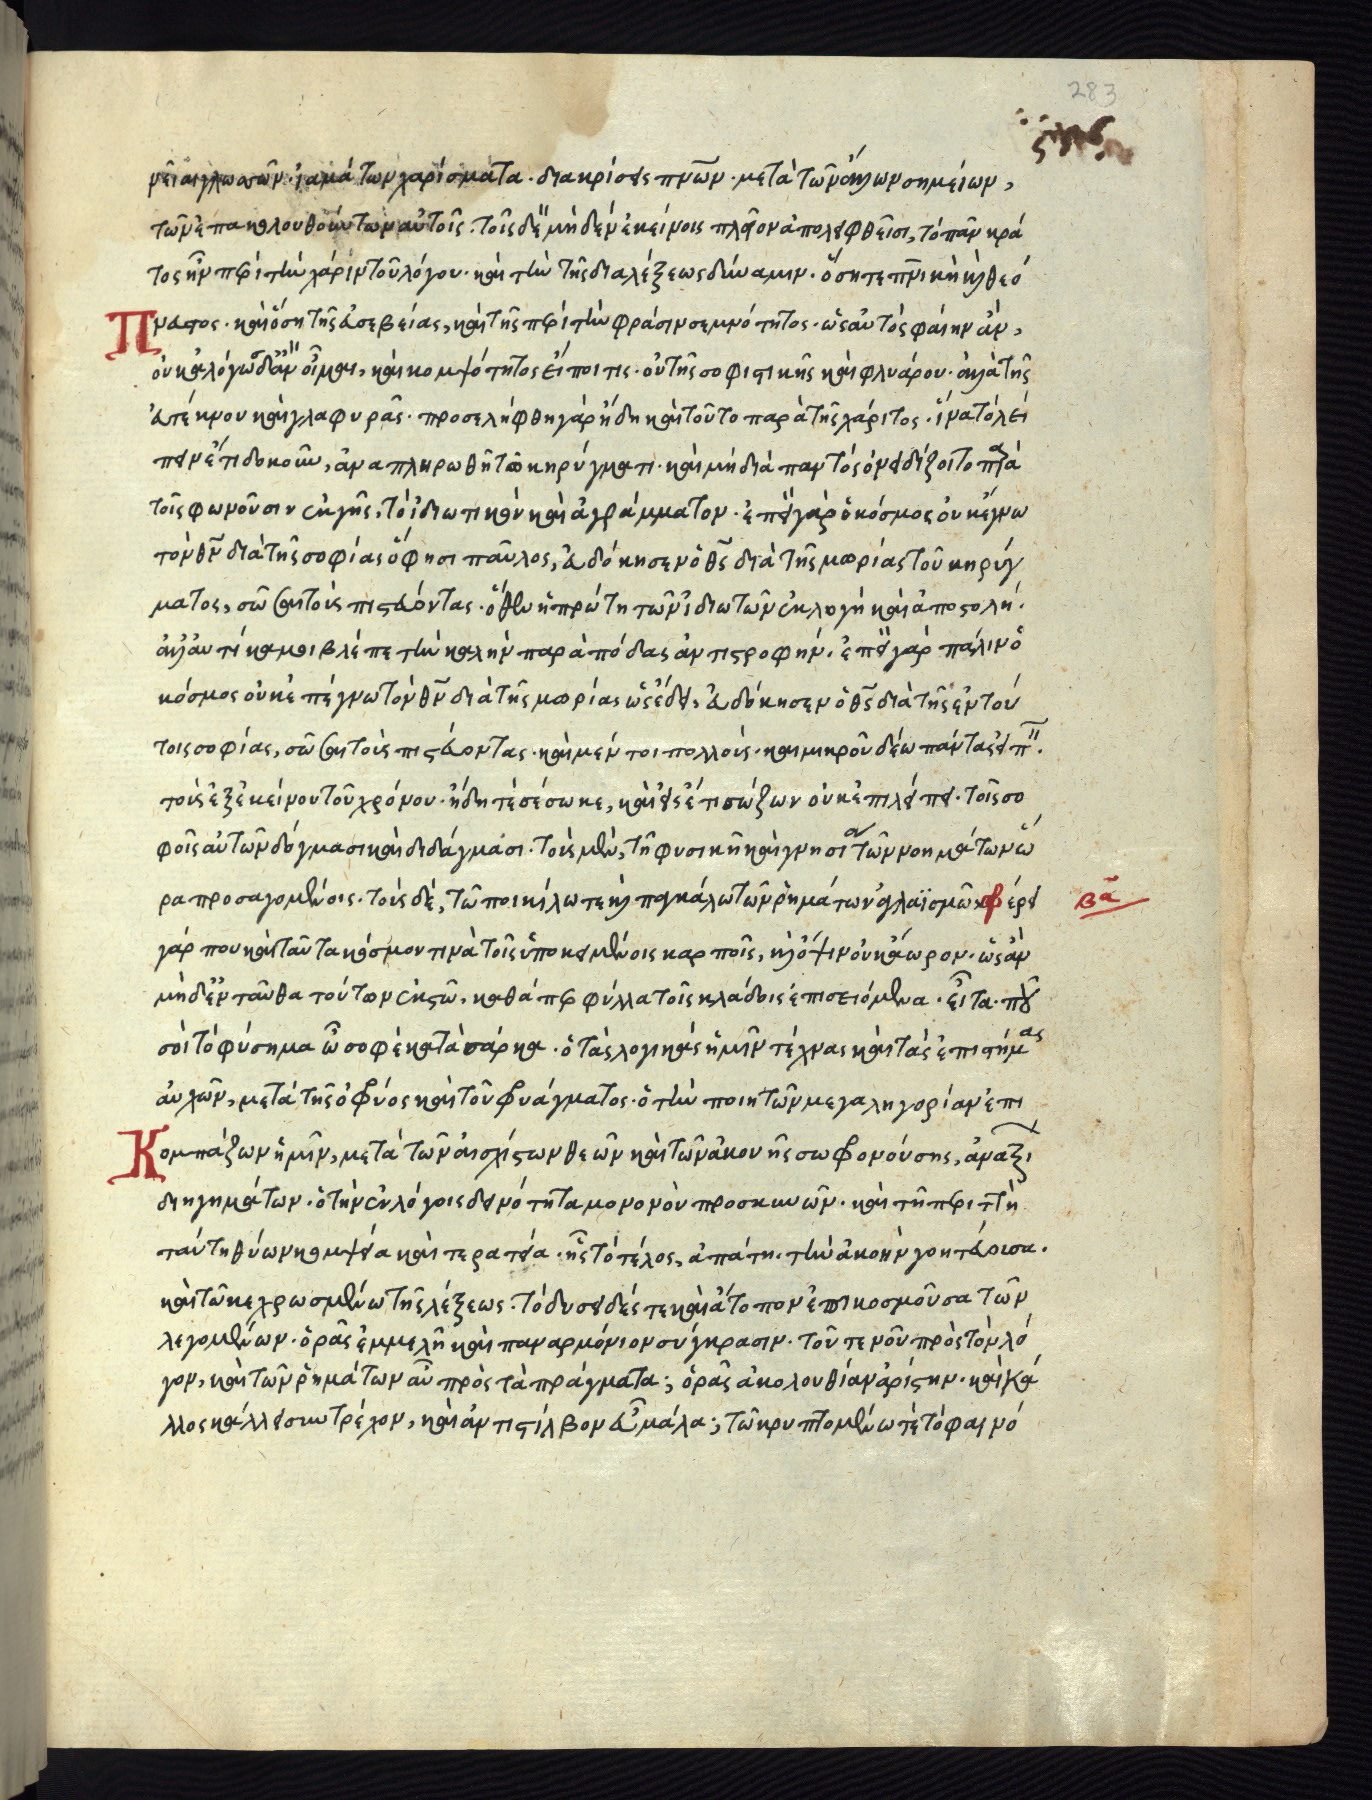 283
νεῖαι γλωσσῶν· ἰαμάτων χαρίσματα· διακρίσεις πνῶν· μετὰ τῶν ἄλλων σημείων,
τῶν ἐπακολουθούντων αὐτοῖς. τοῖς δὲ μηδὲν ἐκείνοις πλέον ἀπολειφθεῖσι, τὸ πᾶν κρά
τος ἦν περὶ τὴν χάριν τοῦ λόγου· καὶ τὴν τῆς διαλέξεως δύναμιν· ὅση τε πνικὴ καὶ θεό
Πνευστος· καὶ ὅση τῆς εὐσεβείας, καὶ τῆς περὶ τὴν φράσιν σεμνότητος· ὡσαύτως φαίην ἄν,
οὐκ ἀλόγως δ' ἂν οἶμαι, καὶ κομψότητος εἴποι τις· οὐ τῆς σοφιστικῆς καὶ φλυάρου· ἀλλὰ τῆς
εὐτέκνου καὶ γλαφυρᾶς· προσελήφθη γὰρ ἤδη καὶ τοῦτο παρὰ τῆς χάριτος· ἵνα τὸ λεῖ
πειν ἔτι δοκοῦν, ἀναπληρωθῇ τῷ κηρύγματι· καὶ μὴ διὰ παντὸς ὀνειδίζοιτο παρὰ
τοῖς φωνοῦσιν ἐκ γῆς, τὸ ἰδιωτικὸν καὶ ἀγράμματον· ἐπεὶ γὰρ ὁ κόσμος οὐκ ἔγνω
τὸν θν διὰ τῆς σοφίας ὅ φησι παῦλος, εὐδόκησεν ὁ θς διὰ τῆς μωρίας τοῦ κηρύγ
ματος, σῶσαι τοὺς πιστεύοντας· ὅθεν ἡ πρώτη τῶν ἰδιωτῶν ἐκλογὴ καὶ ἀποστολή·
ἀλλ' ἐνταῦθα μοι βλέπε τὴν καλὴν παρὰ πόδας ἀντιστροφήν. ἐπεὶ γὰρ πάλιν ὁ
κόσμος οὐκ ἐπέγνω τὸν θν διὰ τῆς μωρίας ὡς ἔδει, εὐδόκησεν ὁ θς διὰ τῆς ἐν τού
τοις σοφίας, σῶσαι τοὺς πιστεύοντας· καὶ μέντοι πολλοὺς· καὶ μικροῦ δέω πάντας εἰπεῖν.
τοὺς ἐξ ἐκείνου τοῦ χρόνου· ἤδη τὲ σέσωκε, καὶ εἰς ἔτι σώζων οὐκ ἐπιλείπει· τοῖς σο
φοῖς αὐτῶν δόγμασι καὶ διδάγμασι· τοὺς μὲν, τῇ φυσικῇ καὶ γνησίᾳ τῶν νοημάτων ὥ
ρα προσαγομένοις· τοὺς δὲ, τῷ ποικίλῳ τε καὶ παγκάλῳ τῶν ῥημάτων ἀγλαϊσμῷ· φέρει
βα
γάρ που καὶ ταῦτα κόσμον τινὰ τοῖς ὑποκειμένοις καρποῖς, καὶ ὄψιν οὐκ ἄωρον· ὡς ἂν
μηδὲ ἐνταῦθα τούτων ἐκτὸς, καθάπερ φύλλα τοῖς κλάδοις ἐπισειόμενα· εἶτα· ποῦ
σοὶ τὸ φύσημα ὦ σοφὲ κατὰ σάρκα· ὁ τὰς λογικὰς ἡμῖν τέχνας καὶ τὰς ἐπιστήμας
αὐχῶν, μετὰ τῆς ὀφρύος καὶ τοῦ φρυάγματος· ὁ τὴν ποιητῶν μεγαληγορίαν ἐπι
Κομπάζων ἡμῖν, μετὰ τῶν αἰσχίστων θεῶν καὶ τῶν ἀκοῆς σωφρονούσης, ἀναξί
διηγημάτων· ὁ τὴν ἐν λόγοις δεινότητα μονονοὺ προσκυνῶν· καὶ τῇ περιττῇ
ταύτῃ θύων κομψεία καὶ τερατεία· ἧς τὸ τέλος, ἀπάτη· τὴν ἀκοὴν γοητεύουσα.
καὶ τῷ κεχρωσμένῳ τῆς λέξεως· τὸ δυσειδές τε καὶ ἄτοπον ἐπικοσμοῦσα τῶν
λεγομένων· ὁρᾶς ἐμμελῆ καὶ παναρμόνιον σύγκρασιν· τοῦ τε νοῦ πρὸς τὸν λό
γον, καὶ τῶν ῥημάτων αὖ πρὸς τὰ πράγματα; ὁρᾶς ἀκολουθίαν ἀρίστην· καὶ κά
λλος κάλλει συντρέχον, καὶ ἀντιστίλβον εὖ μάλα; τῷ κρυπτομένῳ τὲ τὸ φαινό